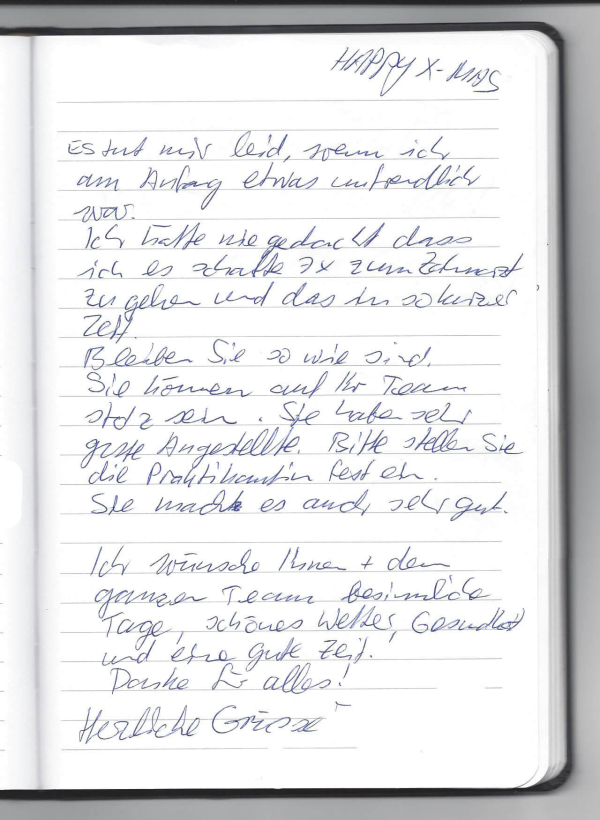 HAPPY X-MAS
Es tut mir leid, wenn ich
am Anfang etwas unfreundlich
war.
Ich hätte nie gedacht dass
ich es schaffe 7x zum Zahnarzt
zu gehen und das in so kurzer
Zeit.
Bleiben Sie so wie sind.
Sie können auf Ihr Team
stolz sein. Sie haben sehr
gute Angestellte. Bitte stellen Sie
die Praktikantin fest ein.
Sie macht es auch sehr gut.
Ich wünsche Ihnen + dem
ganzen Team besinnliche
Tage, schönes Wetter, Gesundheit
und eine gute Zeit!
Danke für alles!
Herzliche Grüsse